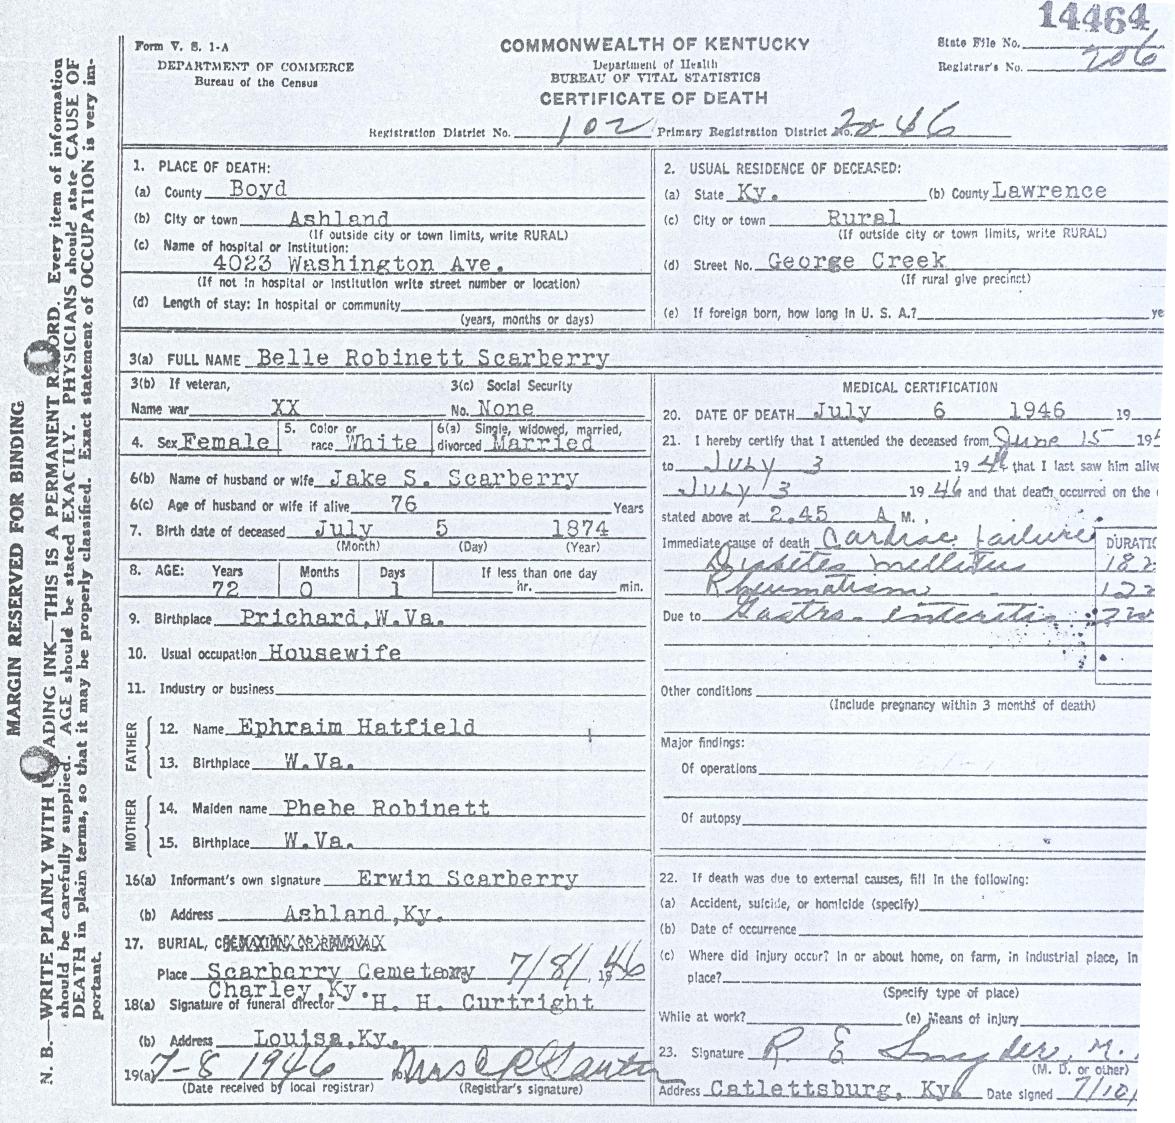 14464
Form V. S. 1-A
DEPARTMENT OF COMMERCE
Bureau of the Census
COMMONWEALTH OF KENTUCKY
Department of Health
BUREAU OF VITAL STATISTICS
CERTIFICATE OF DEATH
State File No.
Registrar's No. 206
Registration District No. 102 Primary Registration District No.
MARGIN RESERVED FOR BINDING
N. B.—WRITE PLAINLY WITH ADING INK—THIS IS A PERMANENT R ORD. Every item of information
should be carefully supplied. AGE should be stated EXACTLY. PHYSICIANS should state CAUSE OF
DEATH in plain terms, so that it may be properly classified. Exact statement of OCCUPATION is very im-
portant.
1. PLACE OF DEATH:
(a) County Boyd
(b) City or town Ashland
(If outside city or town limits, write RURAL)
(c) Name of hospital or Institution:
4023 Washington Ave.
(If not in hospital or institution write street number or location)
(d) Length of stay: In hospital or community
(years, months or days)
2. USUAL RESIDENCE OF DECEASED:
(a) State Ky. (b) County Lawrence
(c) City or town Rural
(If outside city or town limits, write RURAL)
(d) Street No. George Creek
(If rural give precinct)
(e) If foreign born, how long in U. S. A.? ye
3(a) FULL NAME Belle Robinett Scarberry
3(b) If veteran,
Name war XX
3(c) Social Security
No. None
4. Sex Female
5. Color or
race White
6(a) Single, widowed, married,
divorced Married
6(b) Name of husband or wife Jake S. Scarberry
6(c) Age of husband or wife if alive 76 Years
7. Birth date of deceased July 5 1874
(Month) (Day) (Year)
8. AGE: Years Months Days If less than one day
72 0 1 hr. min.
9. Birthplace Prichard, W.Va.
10. Usual occupation Housewife
11. Industry or business
FATHER
12. Name Ephraim Hatfield
13. Birthplace W.Va.
MOTHER
14. Maiden name Phebe Robinett
15. Birthplace W.Va.
16(a) Informant's own signature Erwin Scarberry
(b) Address Ashland, Ky.
17. BURIAL, CREMATION OR REMOVAL
Place Scarberry Cemetery 7/8/ 1946
Charley, Ky.
18(a) Signature of funeral director H. H. Curtright
(b) Address Louisa, Ky.
19(a) 7-8 1946
(Date received by local registrar) (Registrar's signature)
MEDICAL CERTIFICATION
20. DATE OF DEATH July 6 1946 19
21. I hereby certify that I attended the deceased from June 15 19
to July 3 1946 that I last saw him alive
July 3 1946 and that death occurred on the
stated above at 2.45 A M.,
Immediate cause of death Cardiac failure DURATIO
Diabetes mellitus
Rheumatism
Due to Gastro-enteritis
Other conditions
(Include pregnancy within 3 months of death)
Major findings:
Of operations
Of autopsy
22. If death was due to external causes, fill in the following:
(a) Accident, suicide, or homicide (specify)
(b) Date of occurrence
(c) Where did injury occur? In or about home, on farm, in industrial place, in
place?
(Specify type of place)
While at work? (e) Means of injury
23. Signature R E Snyder, M.
(M. D. or other)
Address Catlettsburg, Ky Date signed 7/10/